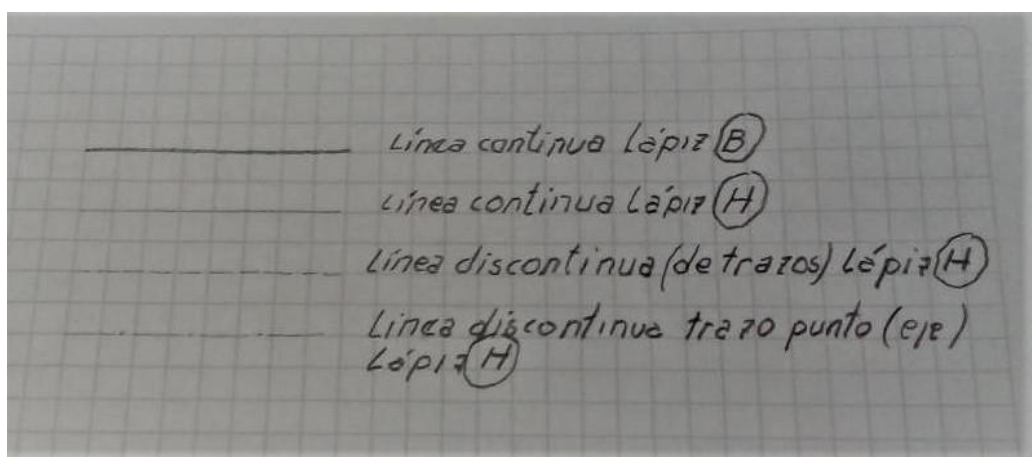 Línea continua Lápiz B
Línea continua Lápiz H
Línea discontinua (de trazos) Lápiz H
Línea discontinua trazo punto (eje)
Lápiz H